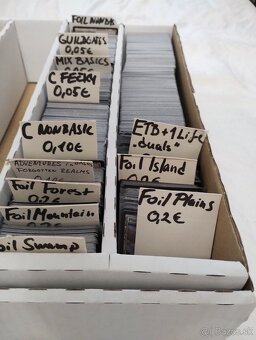 FOIL NONB
GUILDGATES
0,05€
MIX BASICS
C FETKY
0,05€
C NONBASIC
0,10€
ADVENTURES IN
FORGOTTEN REALMS
Foil Forest
0,2€
Foil Mountain
Foil Swamp
ETB+1 Life
"duals"
Foil Island
0,2€
Foil Plains
0,2€
bazos.sk